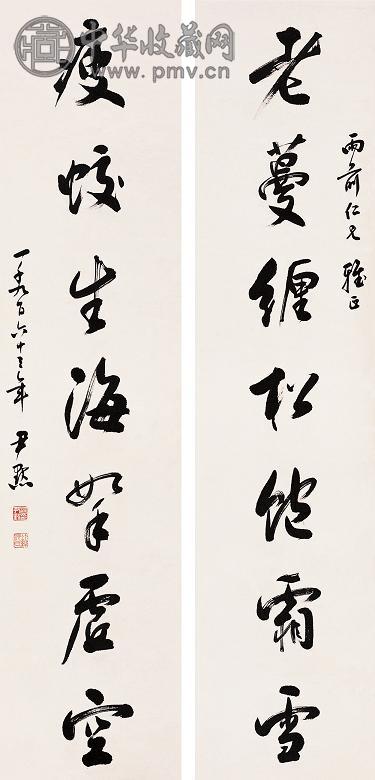 中华收藏网
www.pmv.cn
雨前仁兄雅正
老蔓缠松饱霜雪
瘦蛟出海挐虚空
一千九百六十三年 尹默